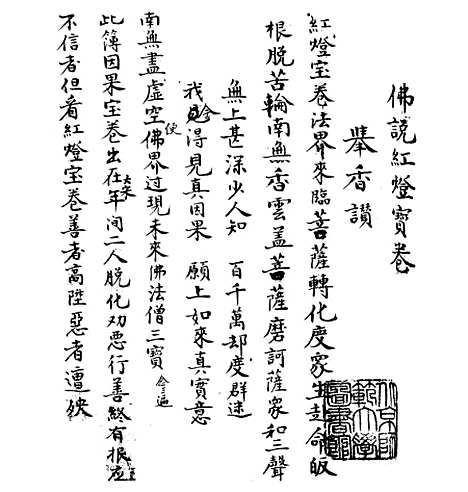 佛說紅燈寶卷
舉香讚
紅燈宝卷法界來臨菩薩轉化度众生赴命皈
根脫苦輪南無香雲盖菩薩磨訶薩众和三聲
無上甚深少人知 百千萬却度群迷
我今得見真因果 願上如來真實意
南無盡虛空佛界过現未來佛法僧三寶
此簿因果宝卷出在大宋年间二人脫化劝惡行善終有报应
不信者但看紅燈宝卷善者高陞惡者遭殃